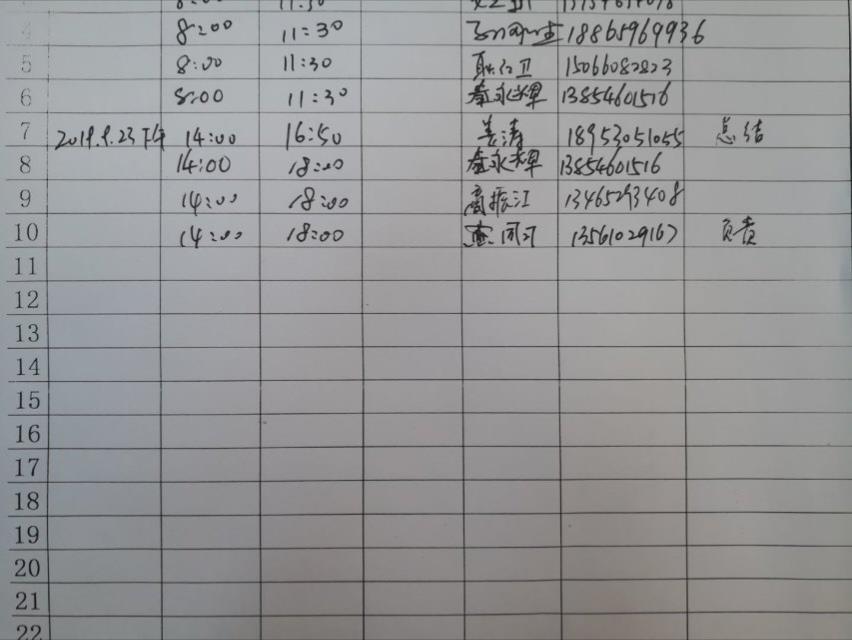 4 8:00 11:30 18865969936
5 8:00 11:30 耿红卫 15066082823
6 8:00 11:30 秦永辉 13854601516
7 2019.9.23下午 14:00 16:50 姜涛 18953051055 总结
8 14:00 18:00 秦永辉 13854601516
9 14:00 18:00 高振江 13465293408
10 14:00 18:00 13561029167 负责
11
12
13
14
15
16
17
18
19
20
21
22